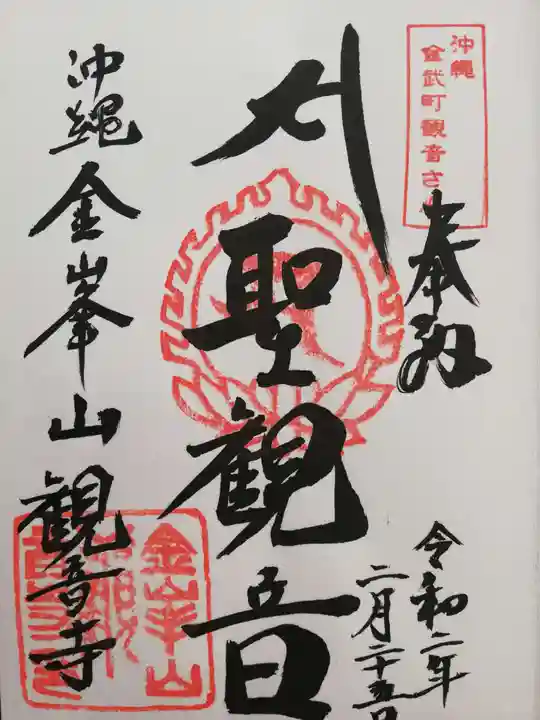 沖縄
金武町観音さ
奉拝
聖観音
令和二年
二月二十五日
沖縄金峯山観音寺
金峯山